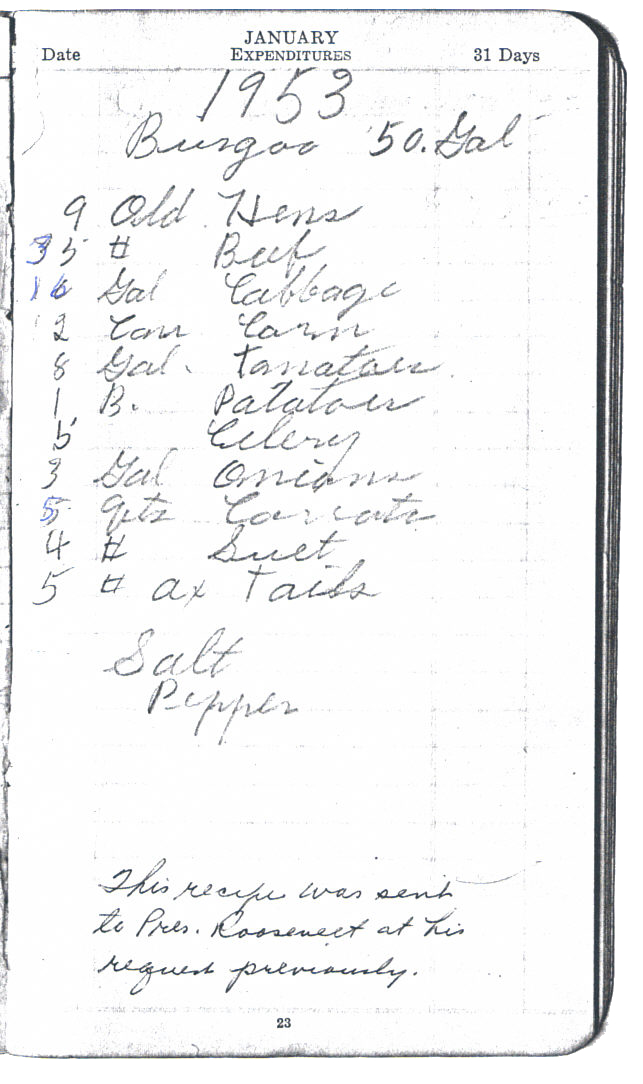 JANUARY
Date EXPENDITURES 31 Days
1953
Burgoo 50. Gal
9 Old Hens
35 # Beef
16 Gal Cabbage
2 Can Corn
8 Gal. Tomatoes
1 B. Patatoes
5 Celery
3 Gal Onions
5 qts Carrots
4 # Suet
5 # ax Tails
Salt
Pepper
This recipe was sent
to Pres. Roosevelt at his
request previously.
23